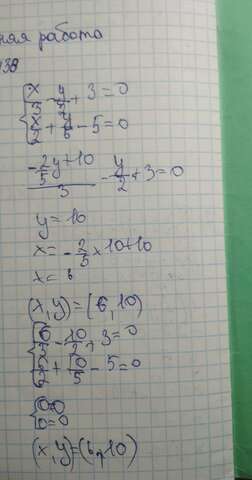 ная работа
938
x/3 - y/2 + 3 = 0
x/2 + y/5 - 5 = 0
(-2/5 y + 10)/3 - y/2 + 3 = 0
y = 10
x = -2/5 × 10 + 10
x = 6
(x, y) = (6, 10)
6/3 - 10/2 + 3 = 0
6/2 + 10/5 - 5 = 0
0 = 0
0 = 0
(x, y) = (6, 10)